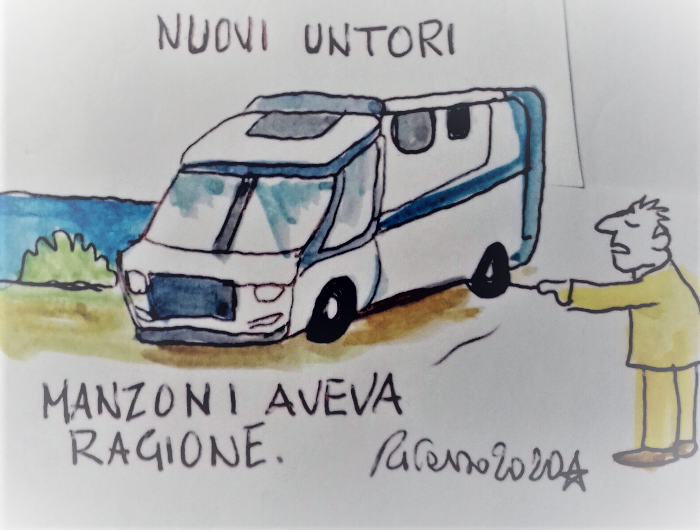 NUOVI UNTORI
MANZONI AVEVA
RAGIONE.
2020